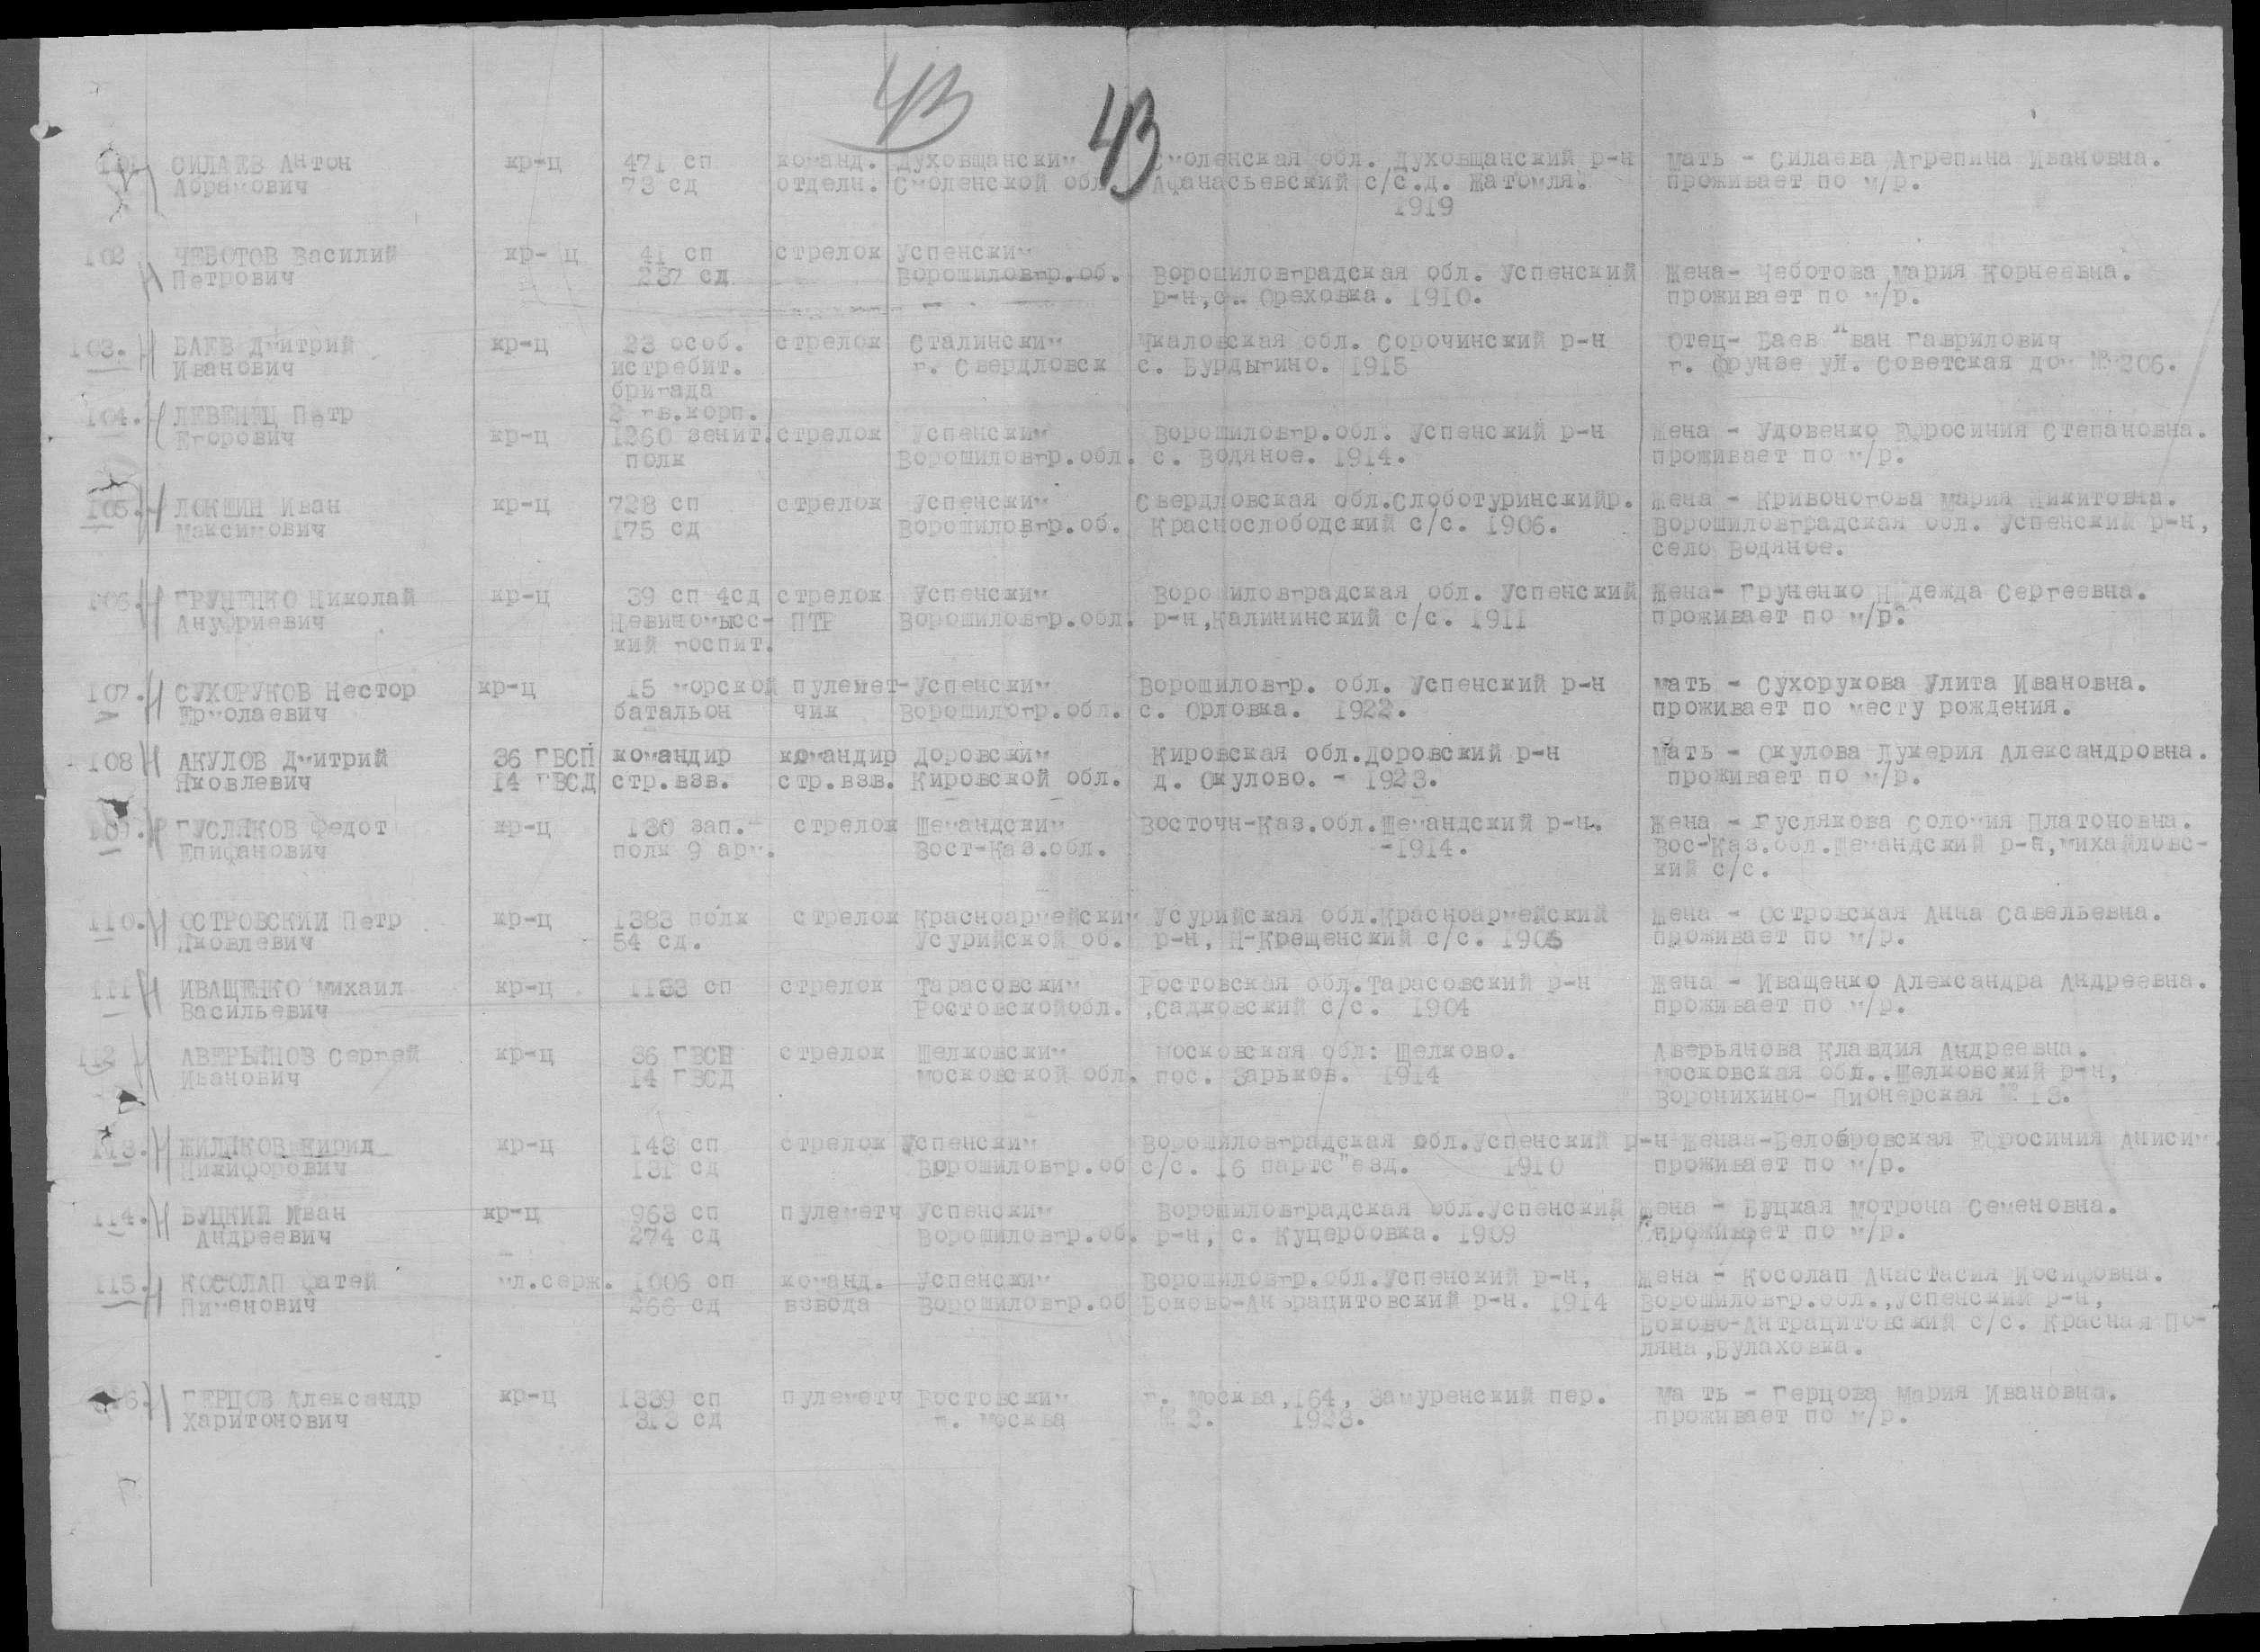 43 43
101 СИЛАЕВ Антон кр-ц 471 сп команд. Духовщанским Смоленская обл. Духовщанский р-н Мать - Силаева Агрепина Ивановна.
Абрамович 73 сд отделн. Смоленской обл. Афанасьевский с/с.д. Жатомля. проживает по м/р.
1919
102 ЧЕБОТОВ Василий кр- ц 41 сп стрелок Успенским
Петрович 237 сд Ворошиловгр.об. Ворошиловградская обл. Успенский Жена- Чеботова Мария Корнеевна.
р-н,с. Ореховка. 1910. проживает по м/р.
103. БАЕВ Дмитрий кр-ц 23 особ. стрелок Сталинским Чкаловская обл. Сорочинский р-н Отец- Баев Иван Гаврилович
Иванович истребит. г. Свердловск с. Бурдыгино. 1915 г. Фрунзе ул. Советская дом № 206.
бригада
104. ЛЕВЕНЕЦ Петр 2 гв.корп.
Егорович кр-ц 1260 зенит. стрелок Успенским Ворошиловгр.обл. Успенский р-н Жена - Удовенко Ефросиния Степановна.
полк Ворошиловгр.обл. с. Водяное. 1914. проживает по м/р.
105. ЛОКШИН Иван кр-ц 728 сп стрелок Успенским Свердловская обл.Слоботуринскийр. Жена - Кривоногова Мария Никитовна.
Максимович 175 сд Ворошиловгр.об. Краснослободский с/с. 1906. Ворошиловградская обл. Успенский р-н,
село Водяное.
106. ГРУНЕНКО Николай кр-ц 39 сп 4сд стрелок Успенским Ворошиловградская обл. Успенский Жена- Груненко Н дежда Сергеевна.
Ануфриевич Невиномысс- ПТР Ворошиловгр.обл. р-н,Калининский с/с. 1911 проживает по м/р.
кий госпит.
107. СУХОРУКОВ Нестор кр-ц 15 морской пулемет- Успенским Ворошиловгр. обл. Успенский р-н Мать - Сухорукова Улита Ивановна.
Ермолаевич батальон чик Ворошилогр.обл. с. Орловка. 1922. проживает по месту рождения.
108 АКУЛОВ Дмитрий 36 ГВСП командир командир Доровским Кировская обл.Доровский р-н Мать - Окулова Лукерия Александровна.
Яковлевич 14 ГВСД стр.взв. стр.взв. Кировской обл. д. Окулово. - 1923. проживает по м/р.
109. ГУСЛЯКОВ Федот кр-ц 130 зап.- стрелок Шемандским Восточн-Каз.обл.Шемандский р-н. Жена - Гуслякова Соломия Платоновна.
Епифанович полк 9 арм. Вост-Каз.обл. -1914. Вос-Каз.обл.Шемандский р-н,Михайловс-
кий с/с.
110. ОСТРОВСКИЙ Петр кр-ц 1383 полк стрелок Красноармейским Усурийская обл.Красноармейский Жена - Островская Анна Савельевна.
Яковлевич 54 сд. Усурийской об. р-н, Н-Крещенский с/с. 1906 проживает по м/р.
111 ИВАЩЕНКО Михаил кр-ц 1133 сп стрелок Тарасовским Ростовская обл.Тарасовский р-н Жена - Иващенко Александра Андреевна.
Васильевич Ростовскойобл. ,Садковский с/с. 1904 проживает по м/р.
112 АВЕРЬЯНОВ Сергей кр-ц 36 ГВСП стрелок Щелковским Московская обл: Щелково. Аверьянова Клавдия Андреевна.
Иванович 14 ГВСД Московской обл. пос. Зарьков. 1914 Московская обл..Щелковский р-н,
Воронихино- Пионерская № 13.
113. ЖИЛЯКОВ Кирил кр-ц 143 сп стрелок Успенским Ворошиловградская обл.Успенский р-н Женаа-Белобровская Ефросиния Анисим.
Никифорович 131 сд Ворошиловгр.об с/с. 16 партс"езд. 1910 проживает по м/р.
114. БУЦКИЙ Иван кр-ц 963 сп пулеметч Успенским Ворошиловградская обл.Успенский Жена - Буцкая Мотрона Семеновна.
Андреевич 274 сд Ворошиловгр.об. р-н, с. Куцербовка. 1909 проживает по м/р.
115. КОСОЛАП Фатей мл.серж. 1006 сп команд. Успенским Ворошиловгр.обл.Успенский р-н, Жена - Косолап Анастасия Иосифовна.
Пименович 266 сд взвода Ворошиловгр.об Боково-Антрацитовский р-н. 1914 Ворошиловгр.обл.,Успенский р-н,
Боково-Антрацитовский с/с. Красная По-
ляна,Булаховка.
116. ГЕРЦОВ Александр кр-ц 1339 сп пулеметч Ростовским г. Москва,164, Замуренский пер. Ма ть - Герцова Мария Ивановна.
Харитонович 313 сд г. Москва № 2. 1923. проживает по м/р.